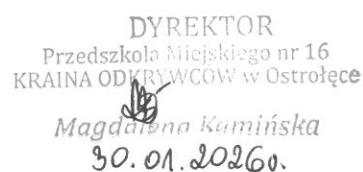 DYREKTOR
Przedszkola Miejskiego nr 16
KRAINA ODKRYWCÓW w Ostrołęce
Magdalena Kamińska
30.01.2026r.